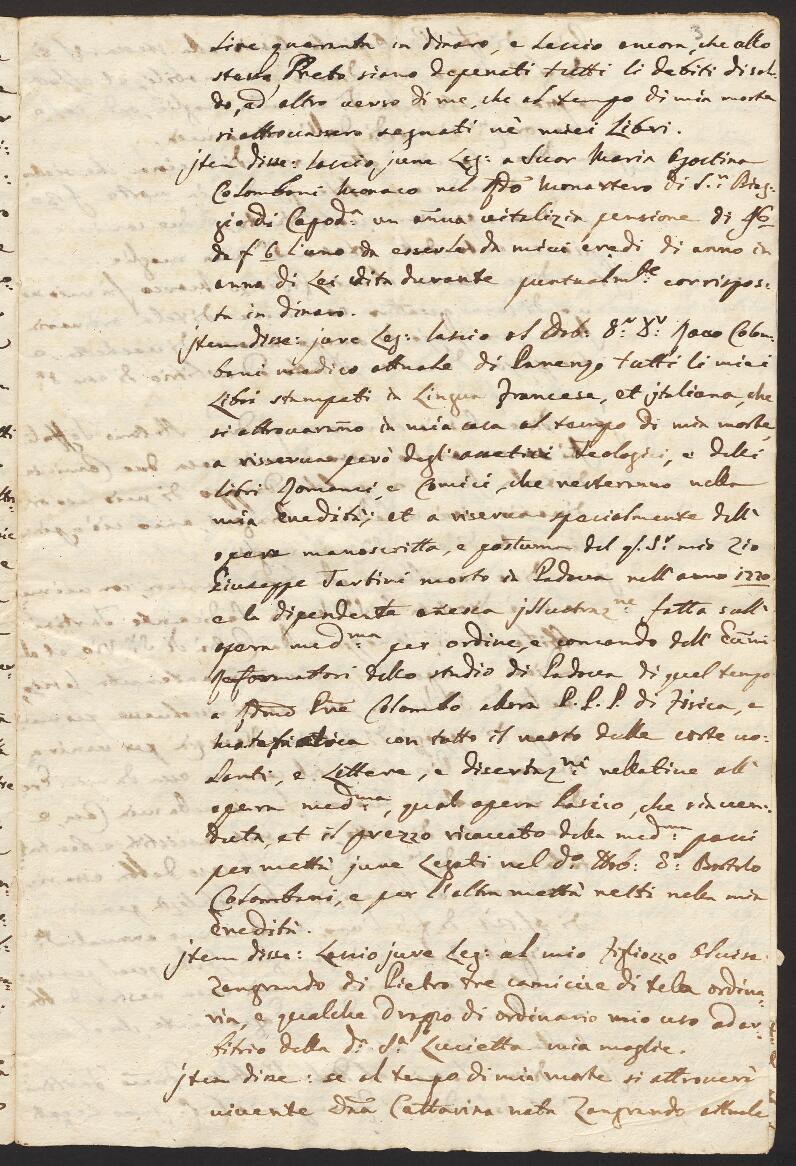 3
Lire quaranta in dinaro, e Lascio ancora, che allo
stesso Preto siano depenati tutti li debiti di sol:
do, ad altro verso di me, che al tempo di mia morte
si attrovassero segnati nè miei Libri.
jtem disse: lascio jure Leg: a Suor Maria Agostina
Colombani Monaca nel Monastero di S.n Biag:
gio di Capod.a un annua vitalizia pensione di
da f 6 l'uno da esserle da miei eredi di anno in
anno di Lei vita durante puntualm.te corrispos:
ta in dinaro.
jtem disse: jure Leg: lascio al Dot: Colom:
bani medico attuale di Parenzo tutti li miei
Libri stampati in Lingua Francese, et jtaliana, che
si attrovarano in mia casa al tempo di mia morte,
a risserva però degl' Teologici, e delli
libri Romanci, e Comici, che resteranno nella
mia Eredità; et a riserva specialmente dell'
opera manoscritta, e postuma del q. S.r mio Zio
Giuseppe Tartini morto in Padova nell'anno 1770
e la dipendente anessa jllustraz.ne fatta sull'
opera med.ma per ordine, e comando dell'
Reformatori dello studio di Padova di quel tempo
a Colombo alora P.P.P. di Fisica, e
con tutto il resto delle carte vo:
lanti, e Lettere, e disertaz.ni rellative all'
opera med.ma, qual opera lascio, che sia ven:
duta, et il prezzo ricavato della med.ma passi
per mettà jure Legati nel d.o Dot: Bortolo
Colombani, e per l'altra mettà resti nella mia
Eredità.
jtem disse: Lascio jure Leg: al mio Fiozzo Aluise
Zangrando di Pietro tre camicie di tella ordina:
ria, e qualche drappo di ordinario mio uso ad ar:
bitrio della d.a S.a Lucietta mia moglie.
jtem disse: se al tempo di mia morte si attroverà
vivente Dna Cattarina nata Zangrando attuale